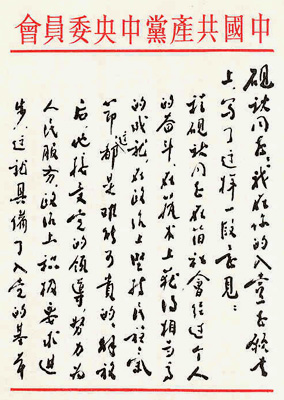 中國共產黨中央委員會
砚秋同志：我在你的入党志愿书
上，写了这样一段意见：
程砚秋同志在旧社会经过个人
的奋斗，在艺术上获得相当高
的成就，在政治上坚持民族气
节，这都是难能可贵的。解放
后，他接受党的领导，努力为
人民服务，政治上积极要求进
步，这就具备了入党的基本